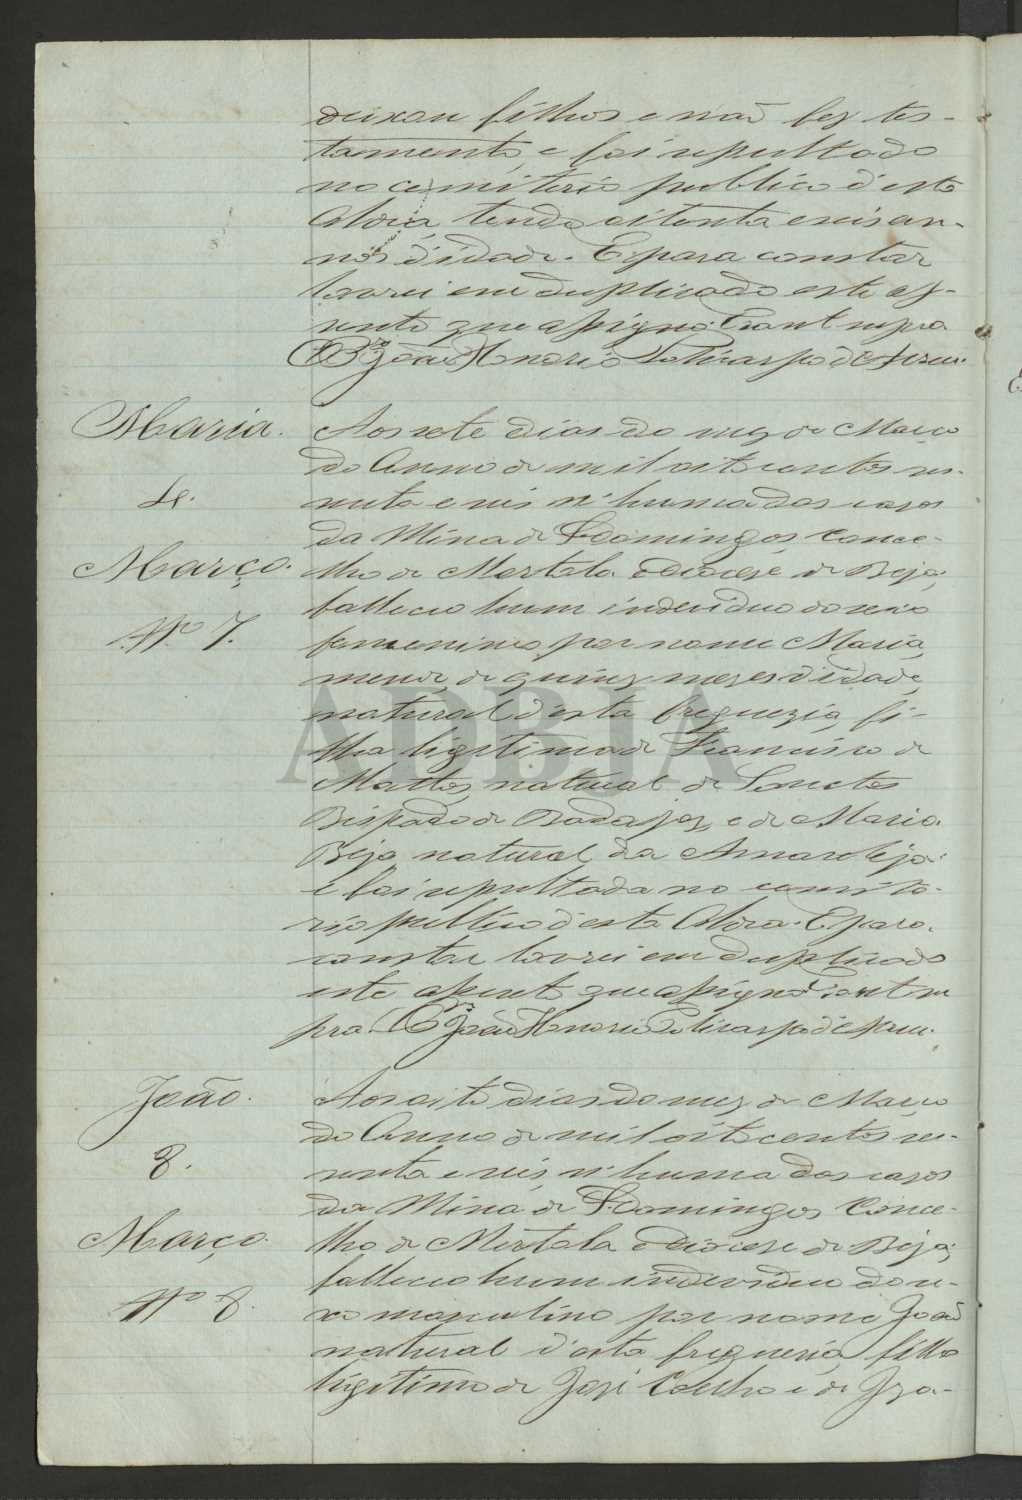 deixou filhos e não fez tes-
tamento, e foi sepultado
no cemiterio publico d'esta
Aldeia, tendo oitenta e seis an-
nos d'idade. E para constar
lavrei em duplicado este as-
sento que assigno. Era ut supra
João Honorio
Maria.
4.
Março.
Nº 7.
Aos sete dias do mez de Março
do Anno de mil oitocentos ses-
senta e seis n'huma das casas
da Mina de S. Domingos Conce-
lho de Mertola e Diocese de Beja,
falleceu hum individuo do sexo
femenino por nome Maria,
menor, de quinze mezes d'idade,
natural d'esta freguezia, fi-
lha ligitima de Francisco de
Mattos, natural de
Bispado de Badajoz, e de Maria
Beja, natural da Amareleja:
e foi sepultada no cemite-
rio publico d'esta Aldeia. E para
constar lavrei em duplicado
este assento que assigno. Era ut su
pra. João Honorio
João.
8.
Março.
Nº 8.
Aos oito dias do mez de Março
do Anno de mil oitocentos ses-
senta e seis, n'huma das casas
da Mina de S. Domingos Conce-
lho de Mertola e Diocese de Beja,
falleceu hum individuo do se-
xo masculino por nome João
natural d'esta freguezia, filho
ligitimo de José Coelho e de Iza-
ADBJA